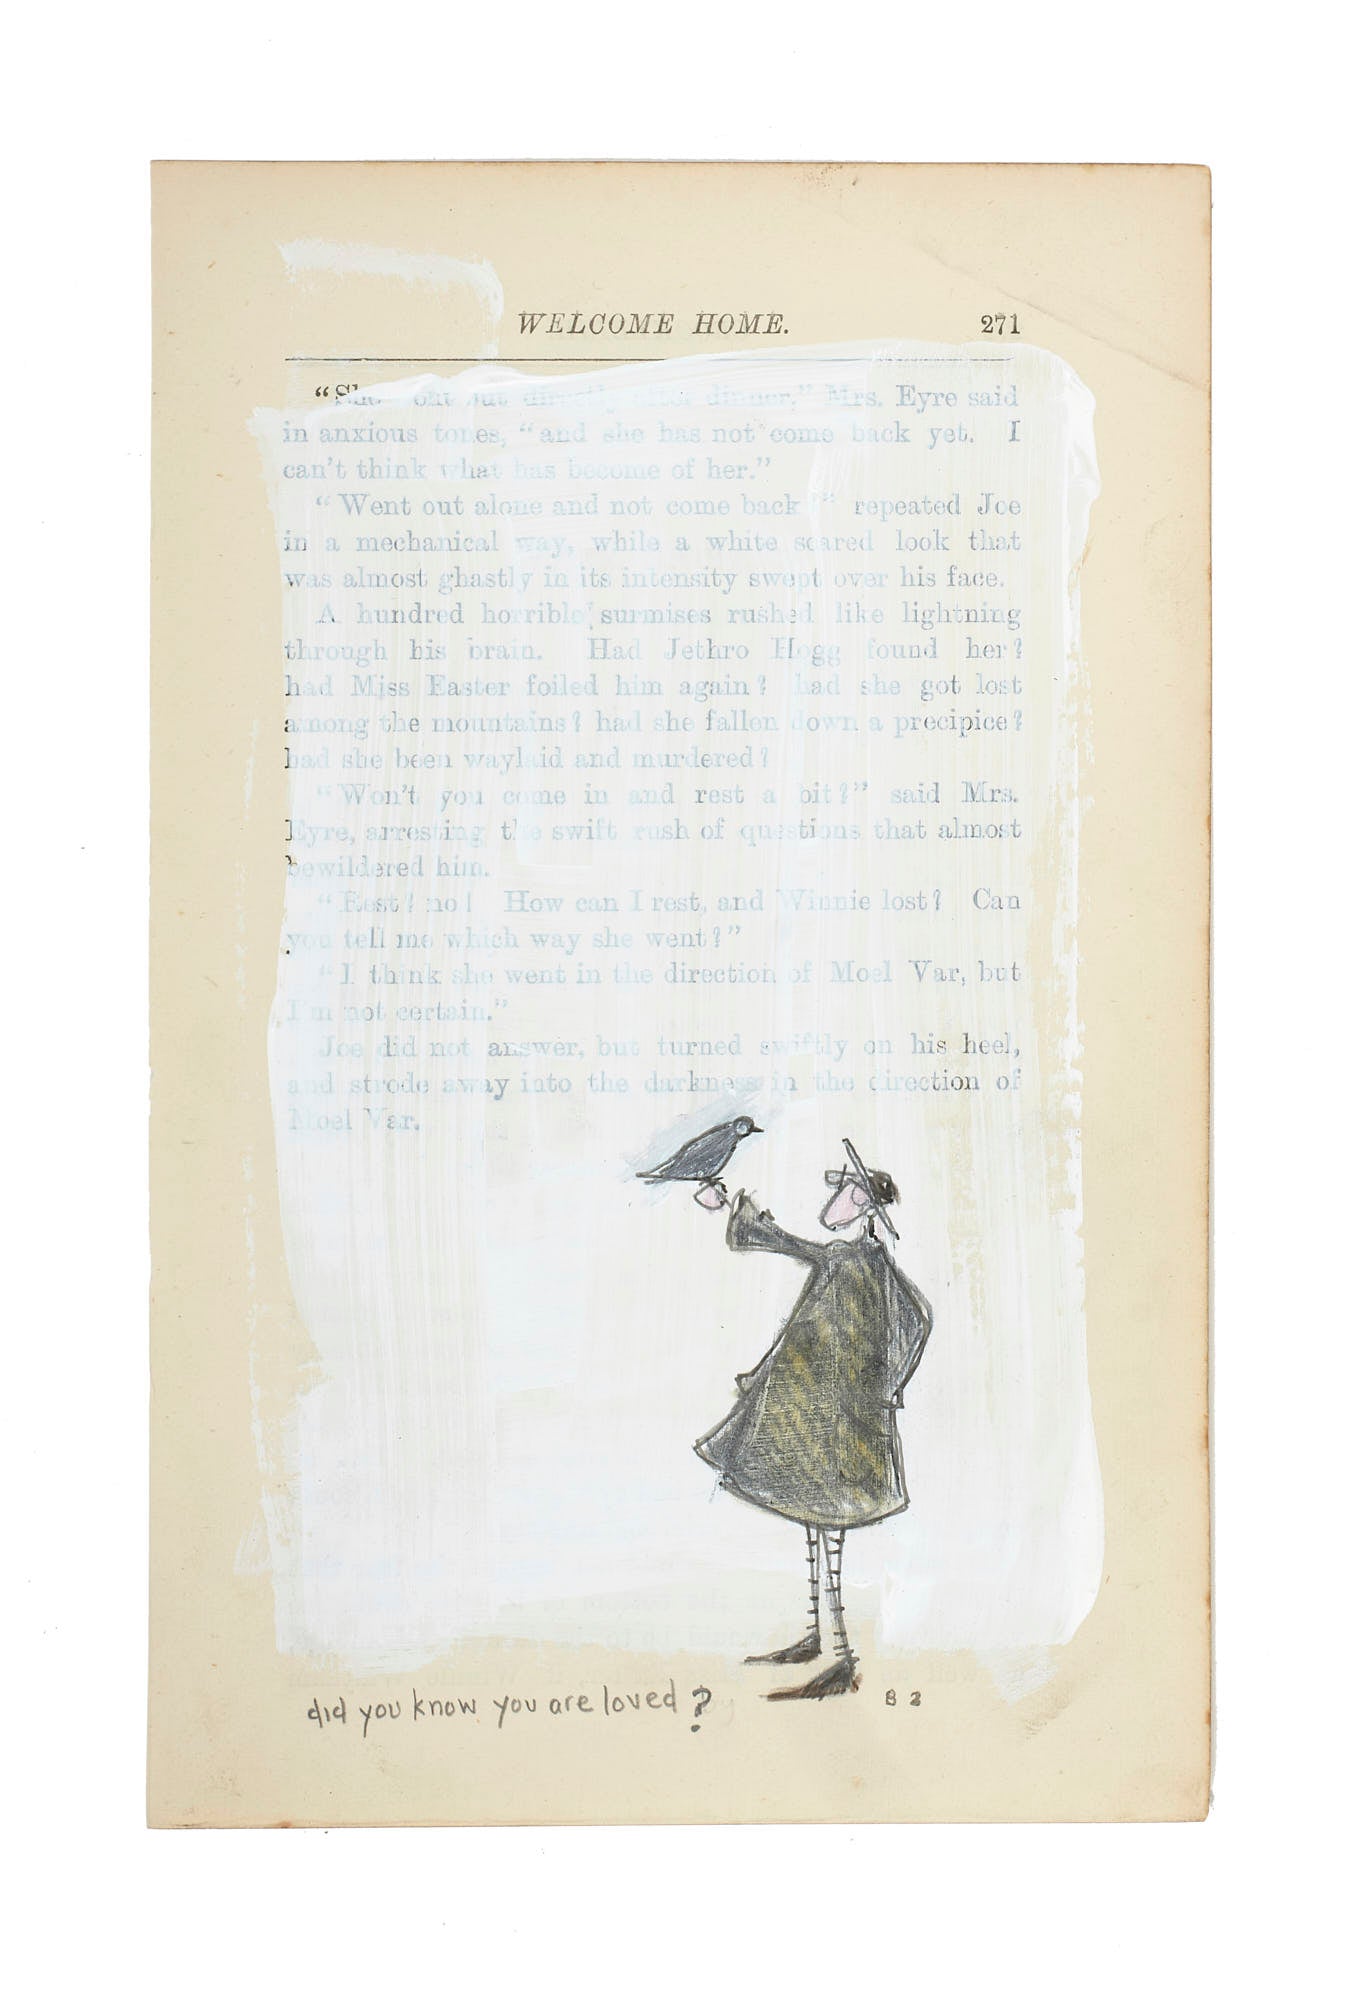 WELCOME HOME. 271
"She out directly after dinner," Mrs. Eyre said
in anxious tones, "and she has not come back yet. I
can't think what has become of her."
"Went out alone and not come back?" repeated Joe
in a mechanical way, while a white scared look that
was almost ghastly in its intensity swept over his face.
A hundred horrible surmises rushed like lightning
through his brain. Had Jethro Hogg found her?
had Miss Easter foiled him again? had she got lost
among the mountains? had she fallen down a precipice?
had she been waylaid and murdered?
"Won't you come in and rest a bit?" said Mrs.
Eyre, arresting the swift rush of questions that almost
bewildered him.
"Rest? no! How can I rest, and Winnie lost? Can
you tell me which way she went?"
"I think she went in the direction of Moel Var, but
I'm not certain."
Joe did not answer, but turned swiftly on his heel,
and strode away into the darkness in the direction of
Moel Var.
did you know you are loved?
B 2